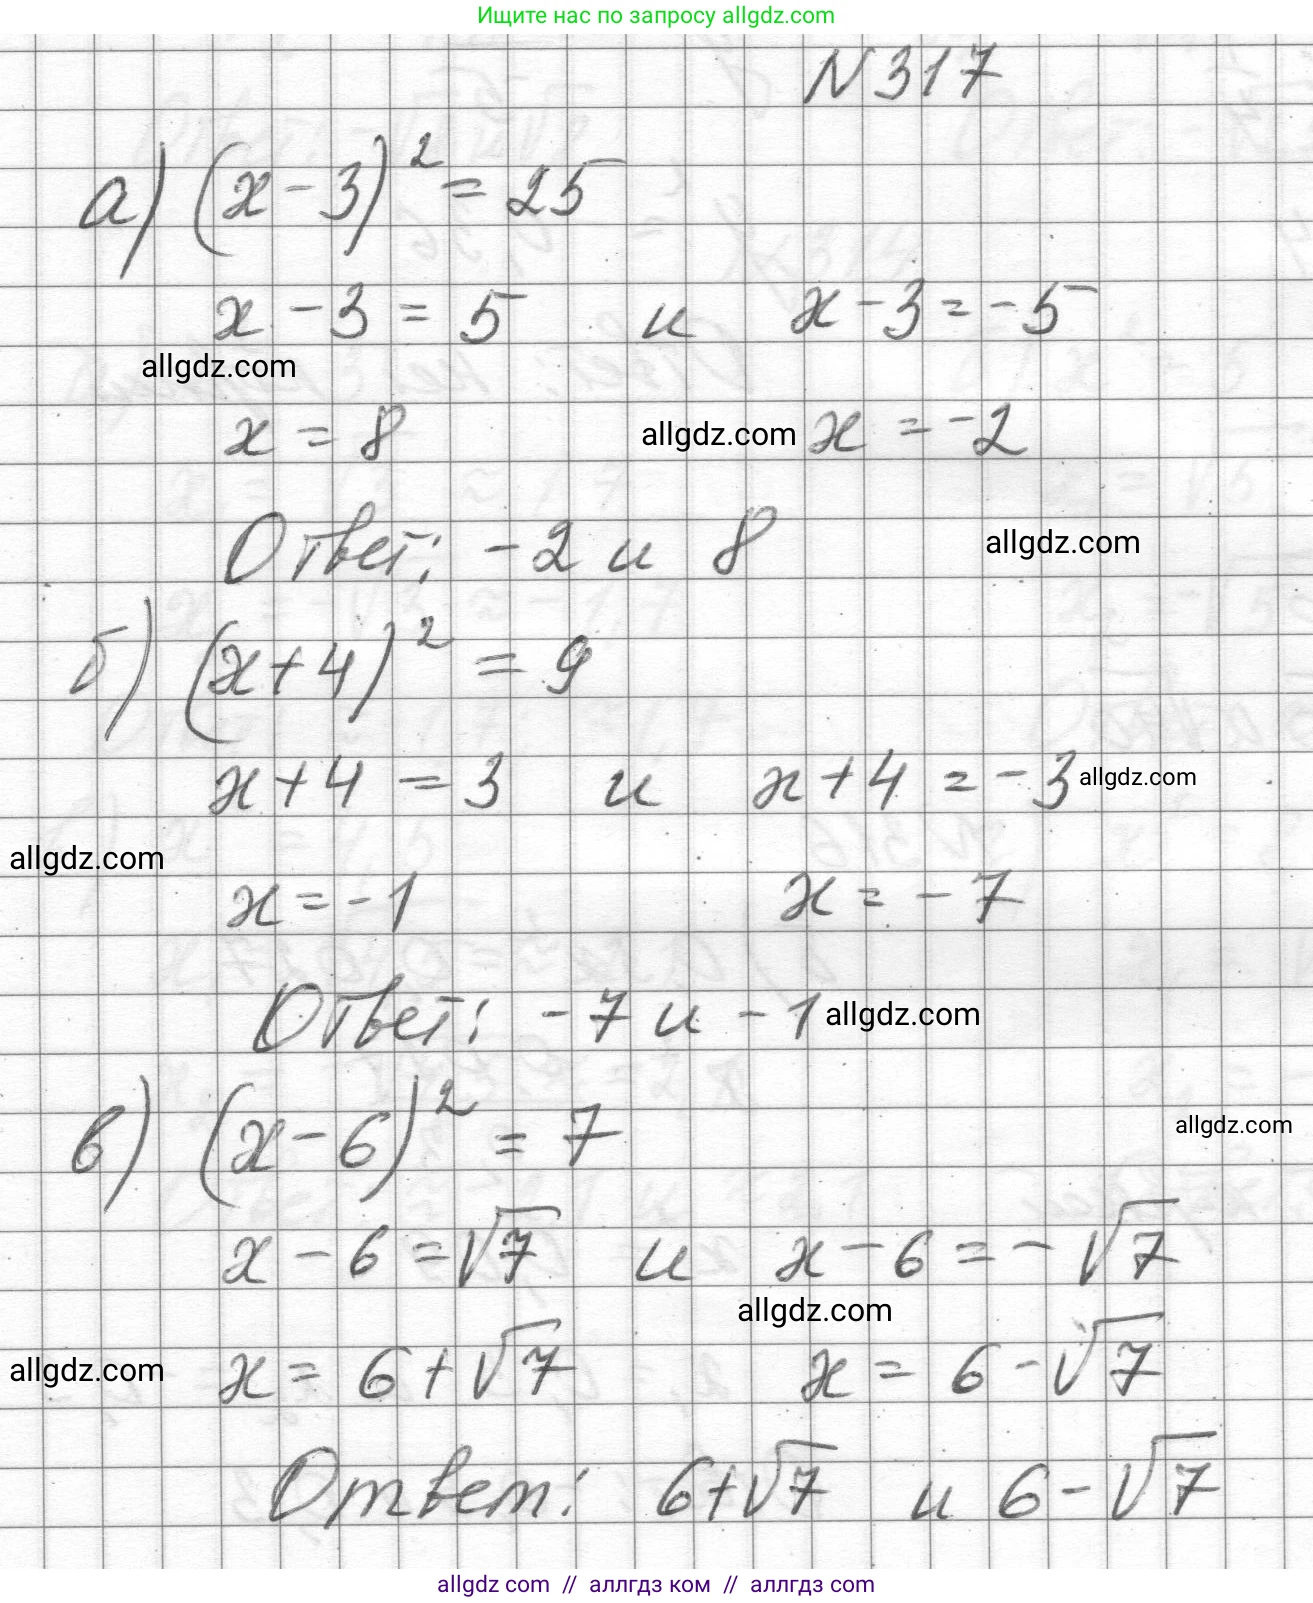 Ищите нас по запросу allgdz.com
N 317
а) (x-3)² = 25
x - 3 = 5 и x - 3 = -5
allgdz.com
x = 8 allgdz.com x = -2
Ответ: -2 и 8 allgdz.com
б) (x+4)² = 9
x+4 = 3 и x+4 = -3 allgdz.com
allgdz.com
x = -1 x = -7
Ответ: -7 и -1 allgdz.com
в) (x-6)² = 7 allgdz.com
x - 6 = √7 и x - 6 = -√7
allgdz.com
allgdz.com x = 6+√7 x = 6-√7
Ответ: 6+√7 и 6-√7
allgdz com // аллгдз ком // аллгдз com